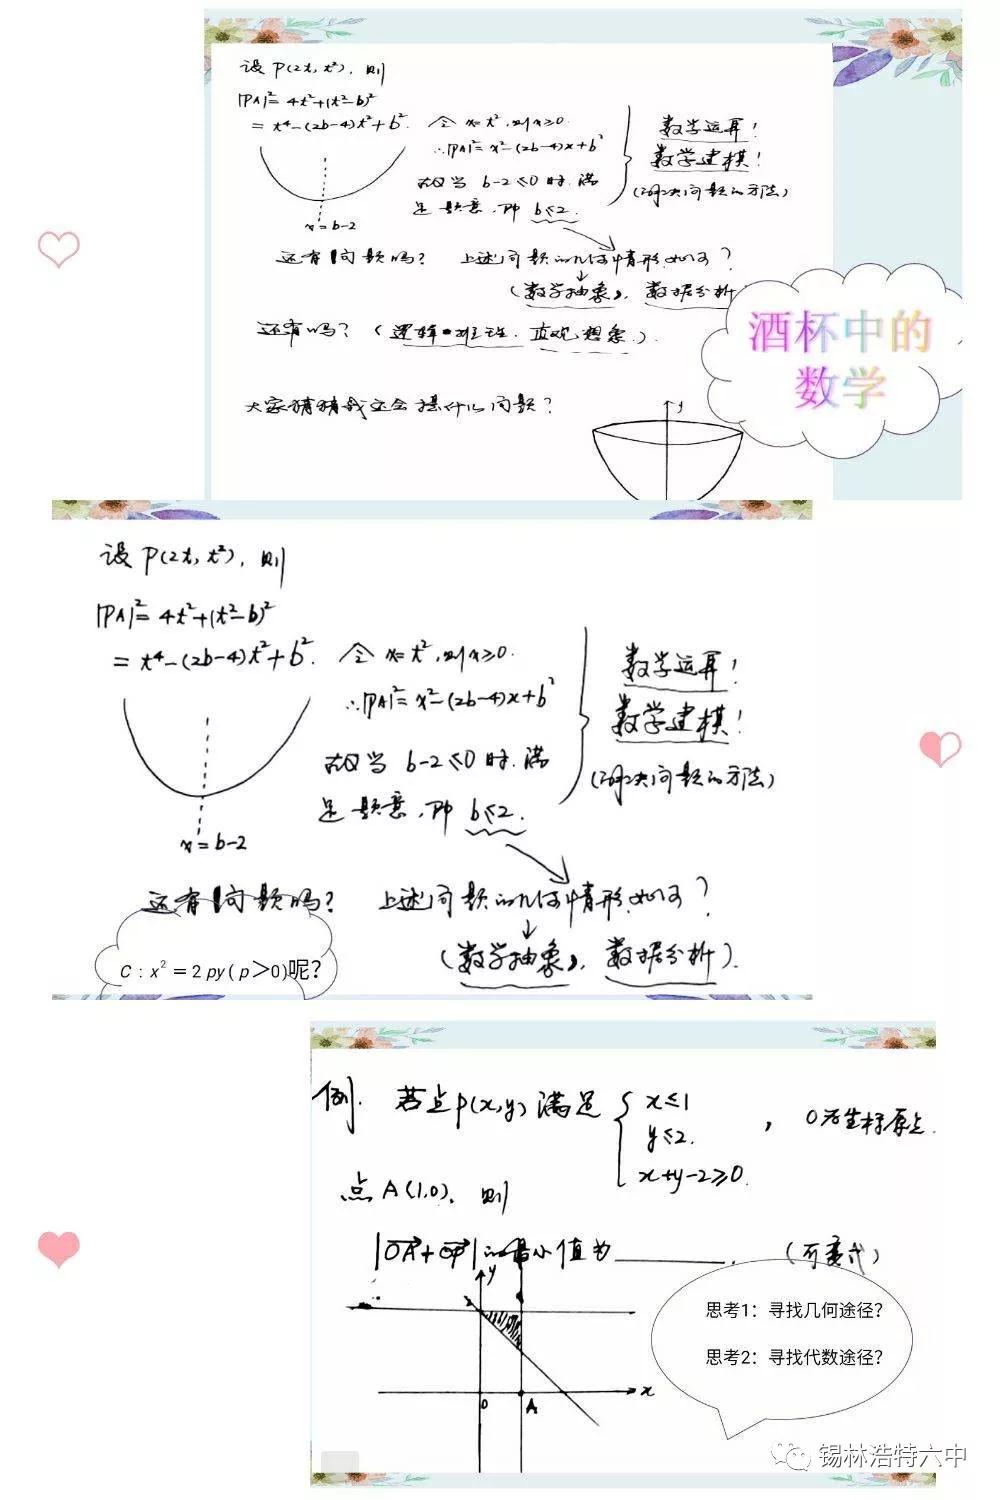 设 P(2t, t²), 则
|PA|² = 4t²+(t²-b)²
= t⁴-(2b-4)t²+b². 令 x=t², 则 x≥0.
∴|PA|²=x²-(2b-4)x+b²
故当 b-2≤0 时. 满
足题意, 即 b≤2.
x=b-2
数学运算!
数学建模!
(解决问题的方法)
还有问题吗? 上述问题的几何情形如何?
(数学抽象), 数据分析
还有吗? (逻辑推理. 直观想象).
大家猜猜我还会提什么问题?
y
酒杯中的
数学
设 P(2t, t²), 则
|PA|² = 4t²+(t²-b)²
= t⁴-(2b-4)t²+b². 令 x=t², 则 x≥0.
∴|PA|²=x²-(2b-4)x+b²
故当 b-2≤0 时. 满
足题意, 即 b≤2.
x=b-2
数学运算!
数学建模!
(解决问题的方法)
还有问题吗? 上述问题的几何情形如何?
(数学抽象), 数据分析).
C : x² = 2py ( p＞0)呢?
例. 若点P(x,y) 满足 { x≤1
y≤2.
x+y-2≥0.
, O为坐标原点.
点A(1,0), 则
|OA+OP| 的最小值为______. (可变式)
y
2
O A x
思考1：寻找几何途径?
思考2：寻找代数途径?
锡林浩特六中